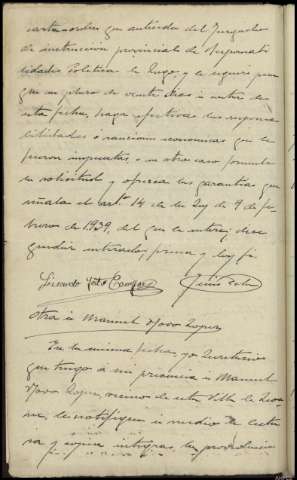 carta-orden que antecede del Juzgado
de instrucción provincial de Responsabi
lidades Políticas de Lugo, y le requiero para
que en plazo de veinte días a contar de
esta fecha, haga efectivas las responsa
bilidades o sanciones economicas que le
fueron impuestas, o en otro caso formule
la solicitud y ofrezca las garantias que
señala el artº 14 de la Ley de 9 de fe
brero de 1939, del que le entera; dese
quedar enterado, firma y doy fé.
Otra a Manuel Novo Lopez
En la misma fecha, yo Secretario
que tengo a mi presencia a Manuel
Novo Lopez, vecino de esta Villa
le notifiqué in medio de lectu
ra y copia integras, la providencia